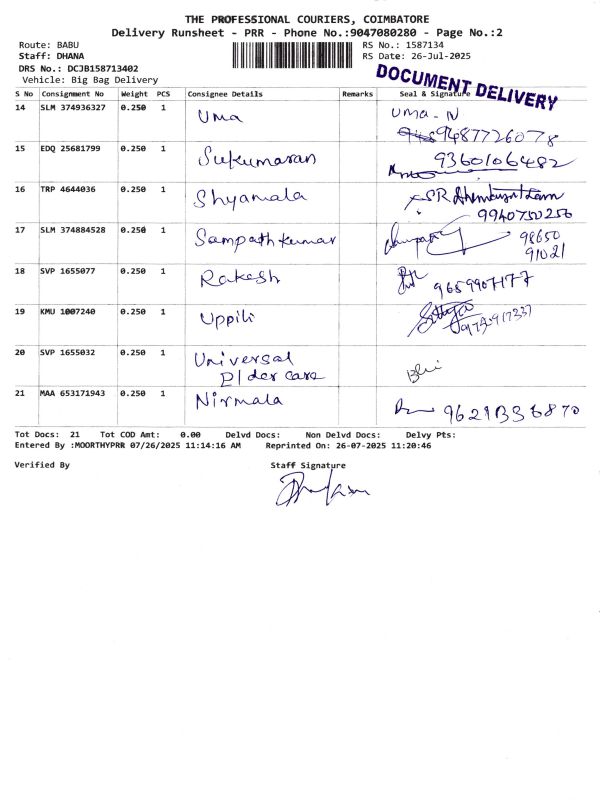 THE PROFESSIONAL COURIERS, COIMBATORE
Delivery Runsheet - PRR - Phone No.:9047080280 - Page No.:2
Route: BABU RS No.: 1587134
Staff: DHANA RS Date: 26-Jul-2025
DRS No.: DCJB158713402
Vehicle: Big Bag Delivery
DOCUMENT DELIVERY
S No Consignment No Weight PCS Consignee Details Remarks Seal & Signature
14 SLM 374936327 0.250 1 Uma Uma - N
9487726078
15 EDQ 25681799 0.250 1 Sukumaran 9360106482
16 TRP 4644036 0.250 1 Shyamala SR
9940750256
17 SLM 374884528 0.250 1 Sampath kumar 98650
91021
18 SVP 1655077 0.250 1 Rakesh 9659907177
19 KMU 1007240 0.250 1 Uppili
20 SVP 1655032 0.250 1 Universal
Elder care
21 MAA 653171943 0.250 1 Nirmala
Tot Docs: 21 Tot COD Amt: 0.00 Delvd Docs: Non Delvd Docs: Delvy Pts:
Entered By :MOORTHYPRR 07/26/2025 11:14:16 AM Reprinted On: 26-07-2025 11:20:46
Verified By Staff Signature